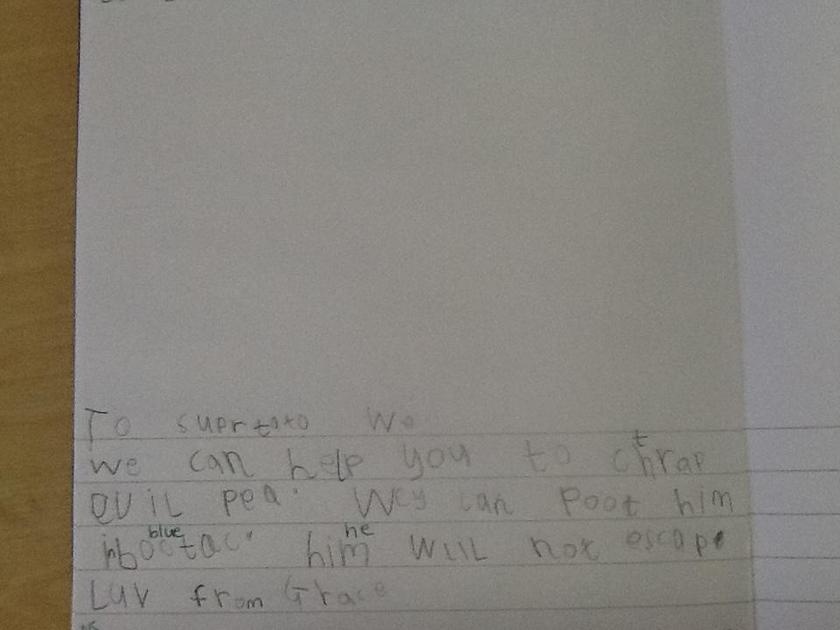 To suprtato We
we can help you to chrap
t
evil pea. Wey can poot him
blue he
inbootac. him will not escape
Luv from Grace